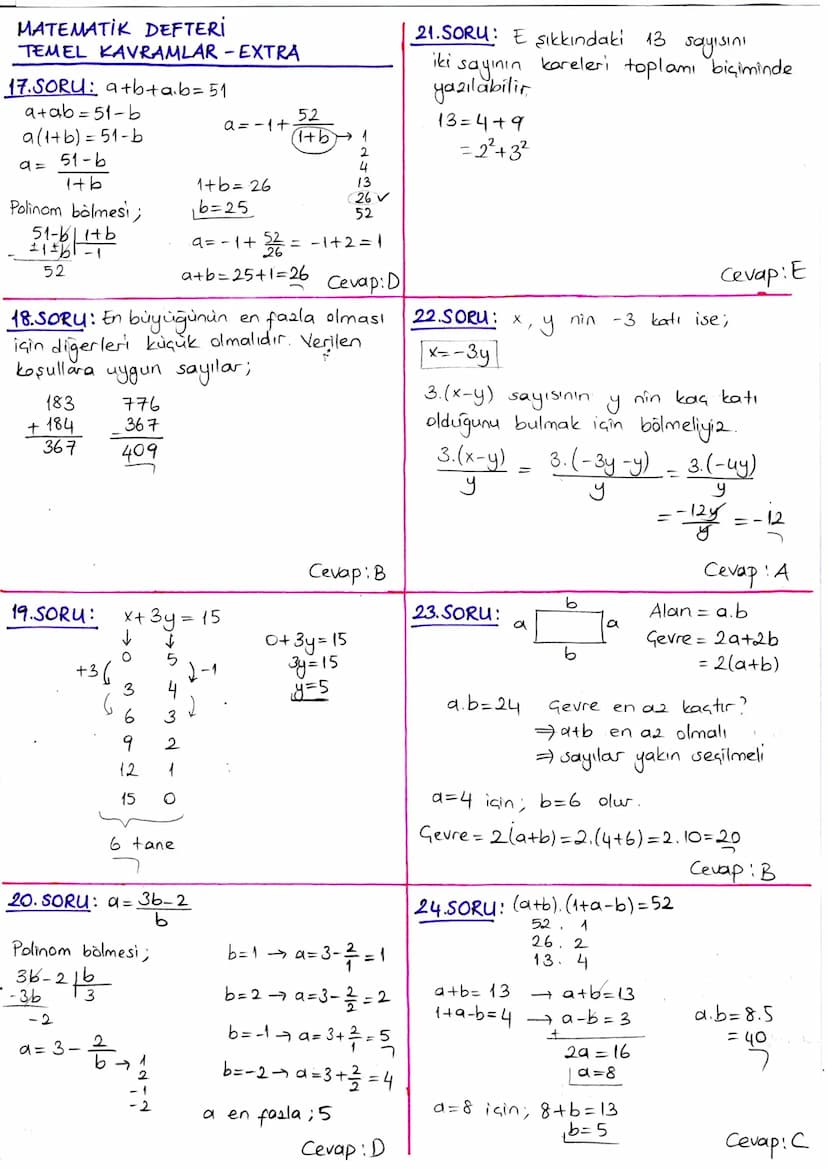 MATEMATİK DEFTERİ
TEMEL KAVRAMLAR - EXTRA
17.SORU: a+b+a.b=51
a+ab=51-b
a(1+b)=51-b
a= 51-b
1+b
Polinom bölmesi;
51-b | 1+b
-±1±b | -1
52
a=-1+ 52
1+b → 1
2
4
13
26 ✓
52
1+b=26
b=25
a=-1+ 52/26 = -1+2=1
a+b=25+1=26
Cevap:D
18.SORU: En büyüğünün en fazla olması
için diğerleri küçük olmalıdır. Verilen
koşullara uygun sayılar;
183
+ 184
367
776
- 367
409
Cevap:B
19.SORU: x+3y=15
↓ ↓
0 5
+3 -1
3 4
6 3
9 2
12 1
15 0
6 tane
0+3y=15
3y=15
y=5
20.SORU: a= 3b-2
b
Polinom bölmesi;
3b-2 | b
-3b | 3
-2
a=3- 2
b → 1
2
-1
-2
b=1 → a=3-2/1=1
b=2 → a=3-2/2=2
b=-1 → a=3+2/1=5
b=-2 → a=3+2/2=4
a en fazla ; 5
Cevap:D
21.SORU: E şıkkındaki 13 sayısını
iki sayının kareleri toplamı biçiminde
yazılabilir.
13=4+9
=2²+3²
Cevap:E
22.SORU: x, y nin -3 katı ise;
x=-3y
3.(x-y) sayısının y nin kaç katı
olduğunu bulmak için bölmeliyiz.
3.(x-y)/y = 3.(-3y-y)/y = 3.(-4y)/y
= -12y/y = -12
Cevap:A
23.SORU:
b
a a
b
Alan = a.b
Çevre = 2a+2b
= 2(a+b)
a.b=24 Çevre en az kaçtır?
⇒ a+b en az olmalı
⇒ sayılar yakın seçilmeli
a=4 için; b=6 olur.
Çevre = 2(a+b)=2.(4+6)=2.10=20
Cevap:B
24.SORU: (a+b).(1+a-b)=52
52 . 1
26 . 2
13 . 4
a+b=13 → a+b=13
1+a-b=4 → a-b=3
+
2a=16
a=8
a.b=8.5
=40
a=8 için; 8+b=13
b=5
Cevap:C